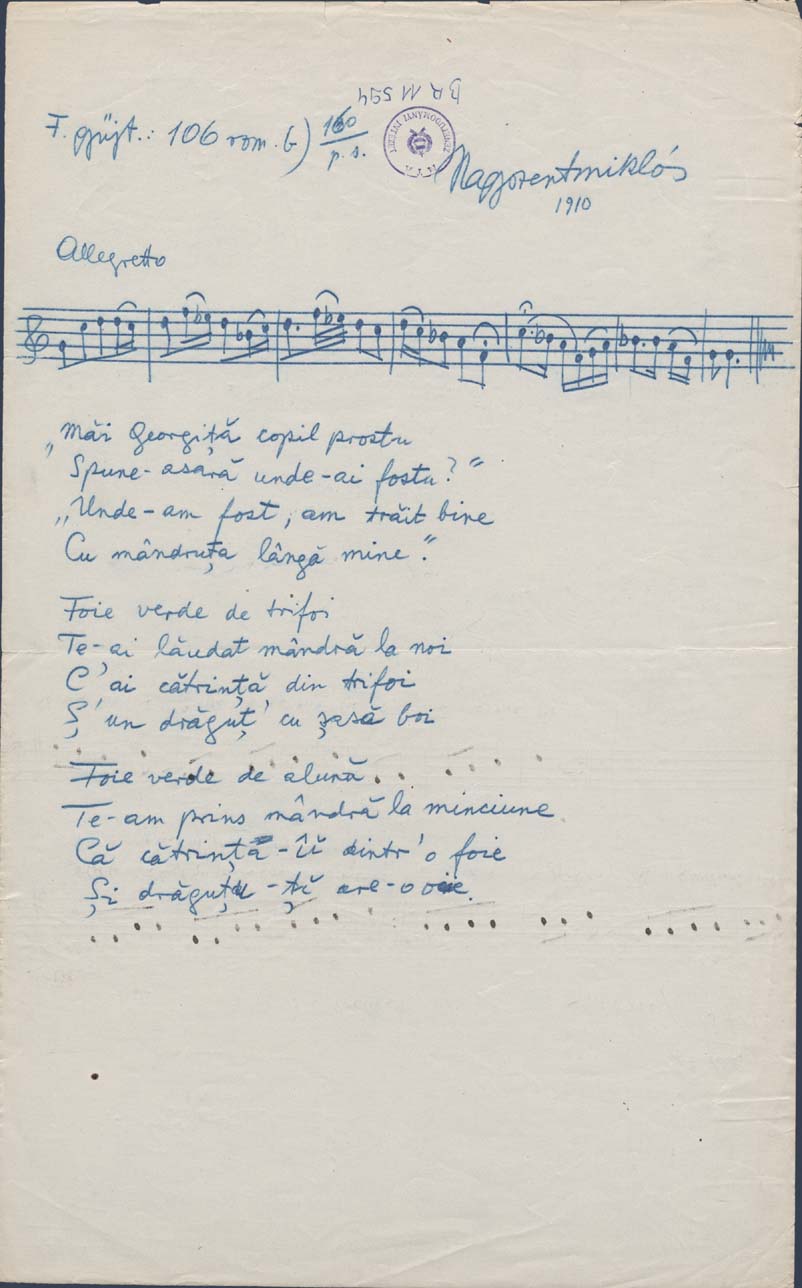 BR 11594
F. gyűjt.: 106 rom. b) 160
p. s.
Nagyszentmiklós
1910
Allegretto
„Măi Georgiță copil prostu
Spune-asară unde-ai fostu?”
„Unde-am fost, am trăit bine
Cu mândruța lângă mine.”
Foie verde de trifoi
Te-ai lăudat mândră la noi
C'ai cătrință din trifoi
Ș'un drăguț cu șasă boi
Foie verde de alună
Te-am prins mândră la minciune
Că cătrință-îi dintr'o foie
Și drăguțu-ți are-o oie.